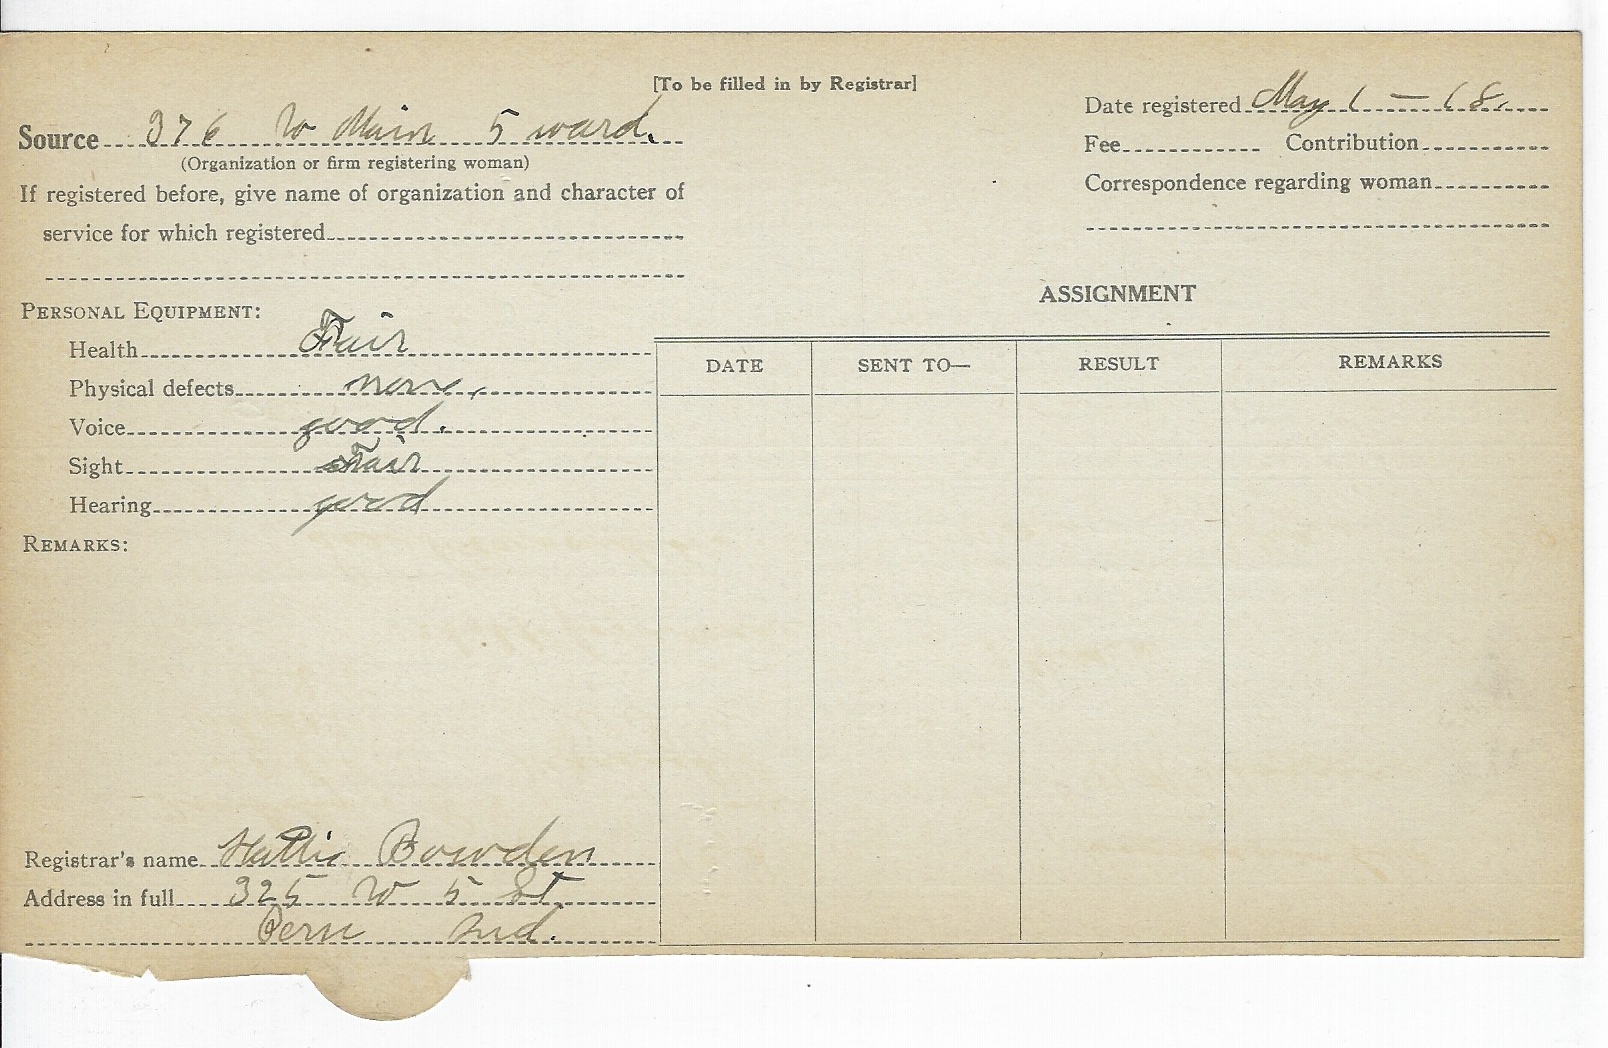 [To be filled in by Registrar]
Source 376 W Main 5 ward.
(Organization or firm registering woman)
If registered before, give name of organization and character of
service for which registered
Date registered May 1 — 18.
Fee Contribution
Correspondence regarding woman
PERSONAL EQUIPMENT:
Health Fair
Physical defects none.
Voice good.
Sight Fair
Hearing good
REMARKS:
ASSIGNMENT
DATE SENT TO— RESULT REMARKS
Registrar's name Hattie Bowden
Address in full 325 W 5 St
Peru Ind.